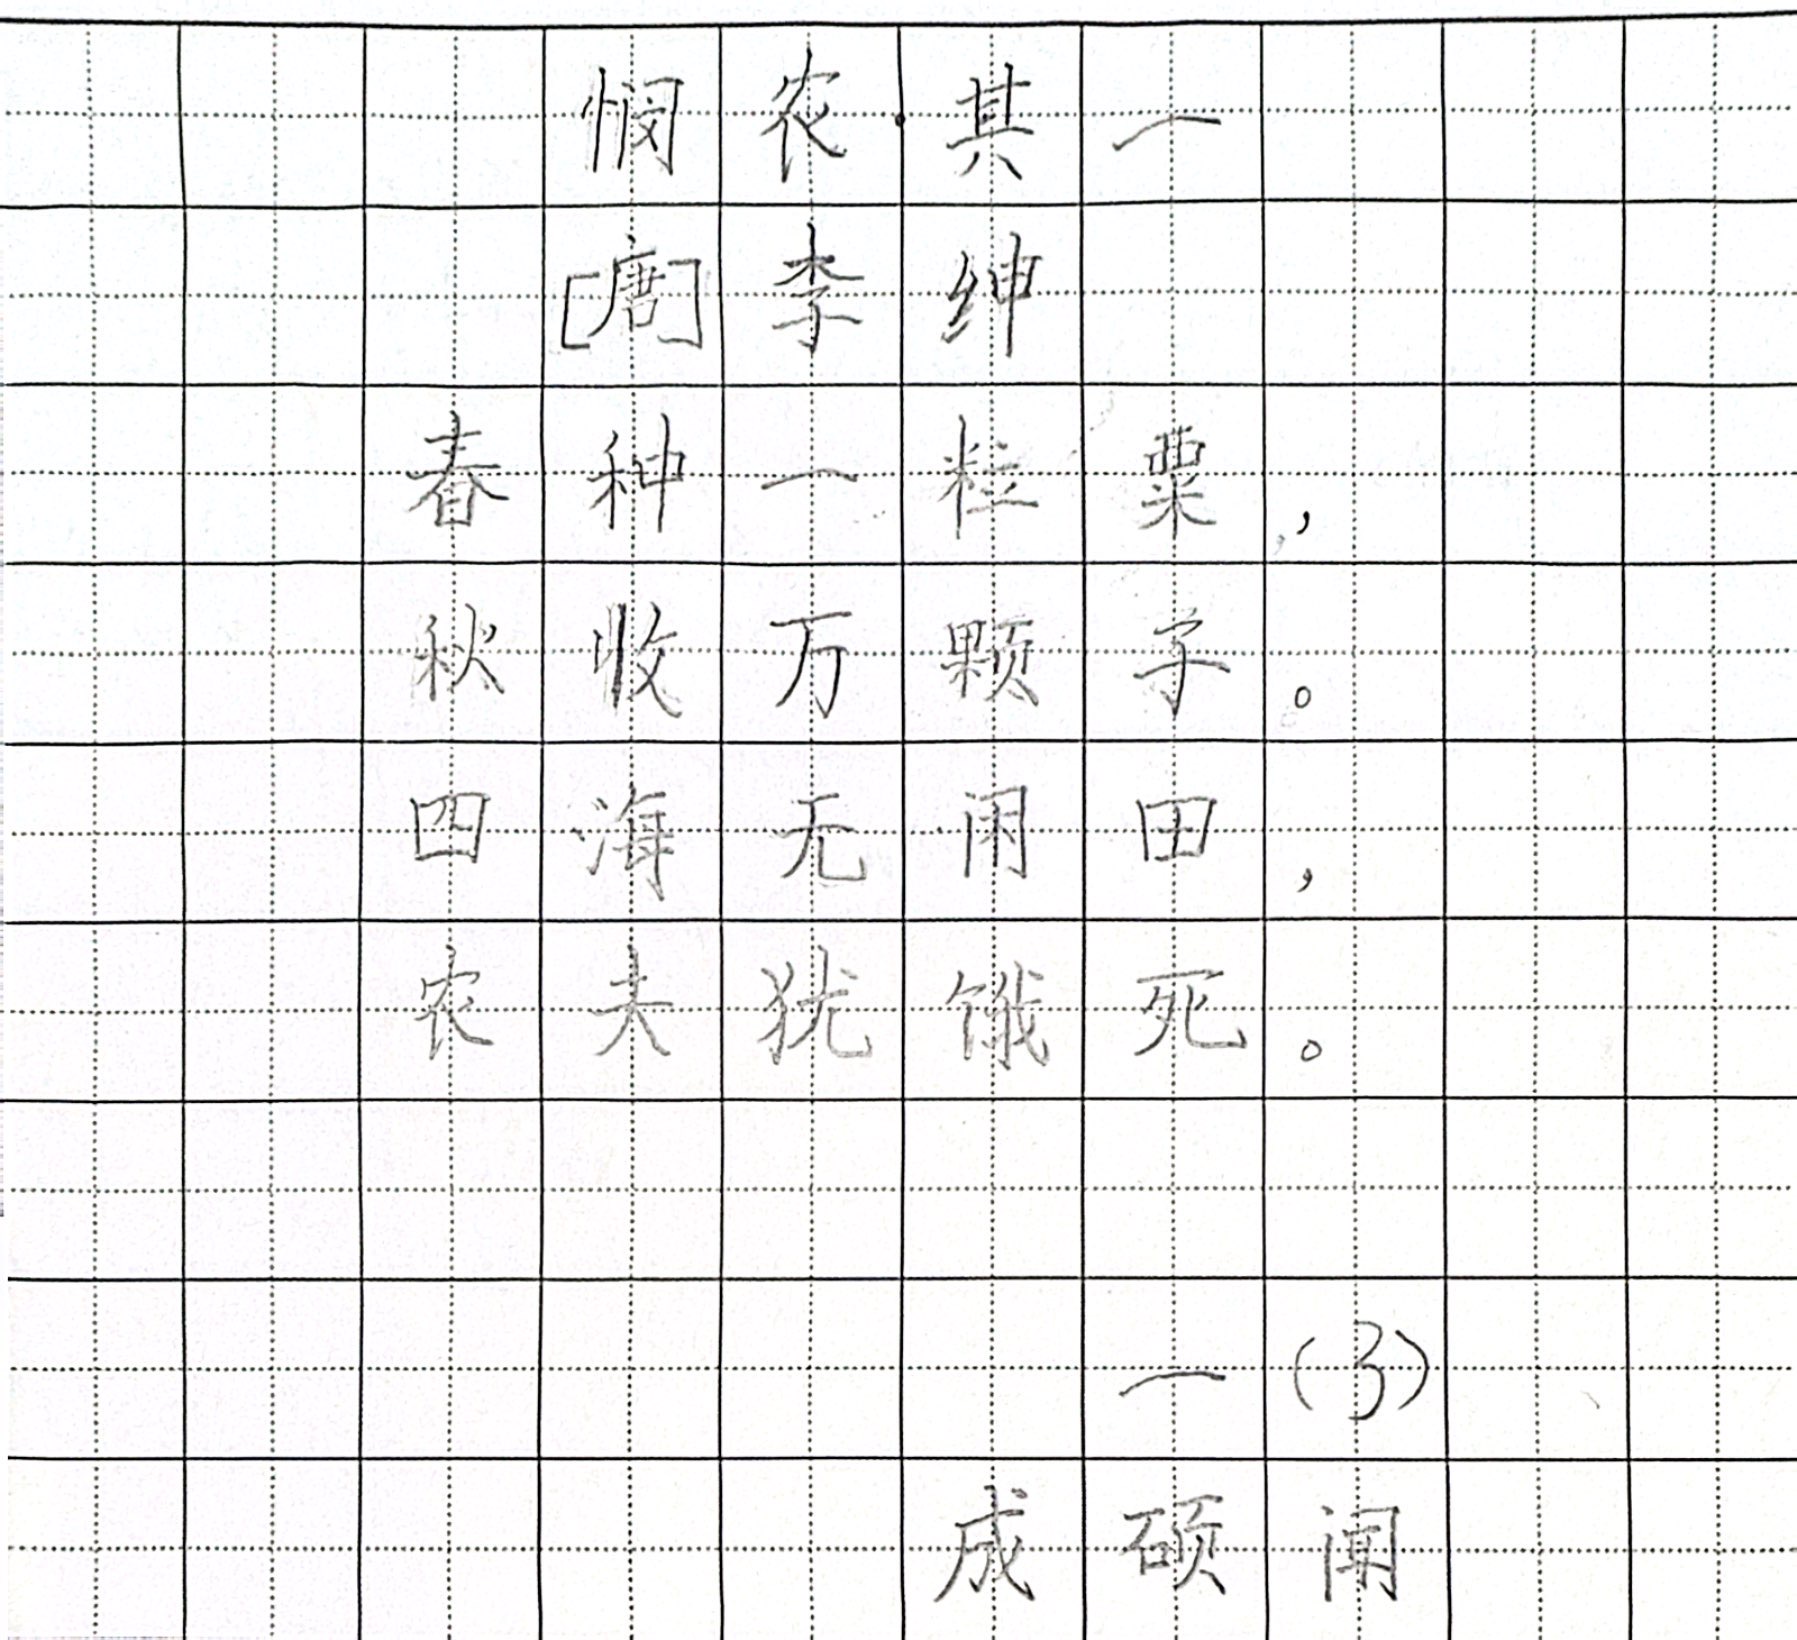 悯农·其一
[唐]李绅
春种一粒粟，
秋收万颗子。
四海无闲田，
农夫犹饿死。
一(3)
成硕闻